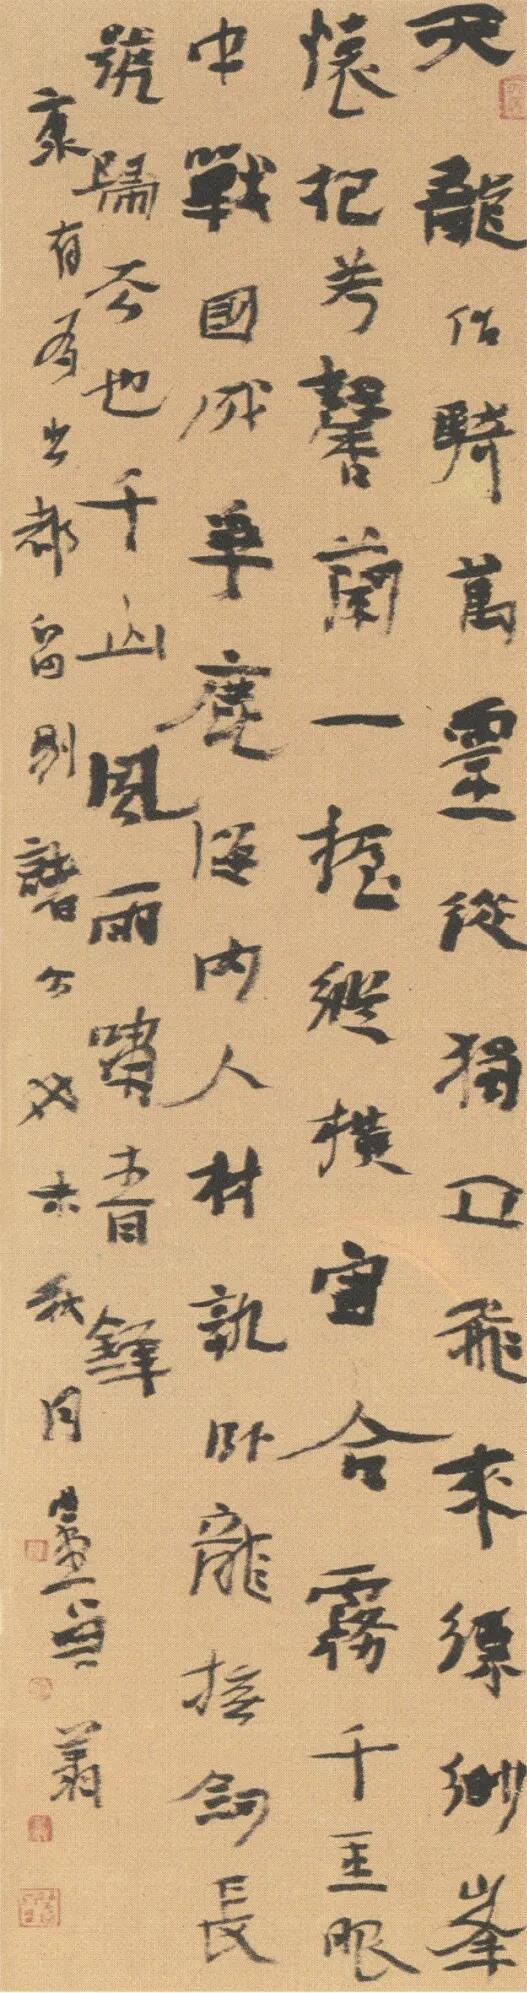 天龍作騎萬靈從獨立飛來縹緲峯
懷抱芳馨蘭一握縱橫宙合霧千里眼
中戰國成爭鹿海內人材孰臥龍撫劍長
號歸去也千山風雨嘯青鋒
康有為出都留別諸公 未秋月